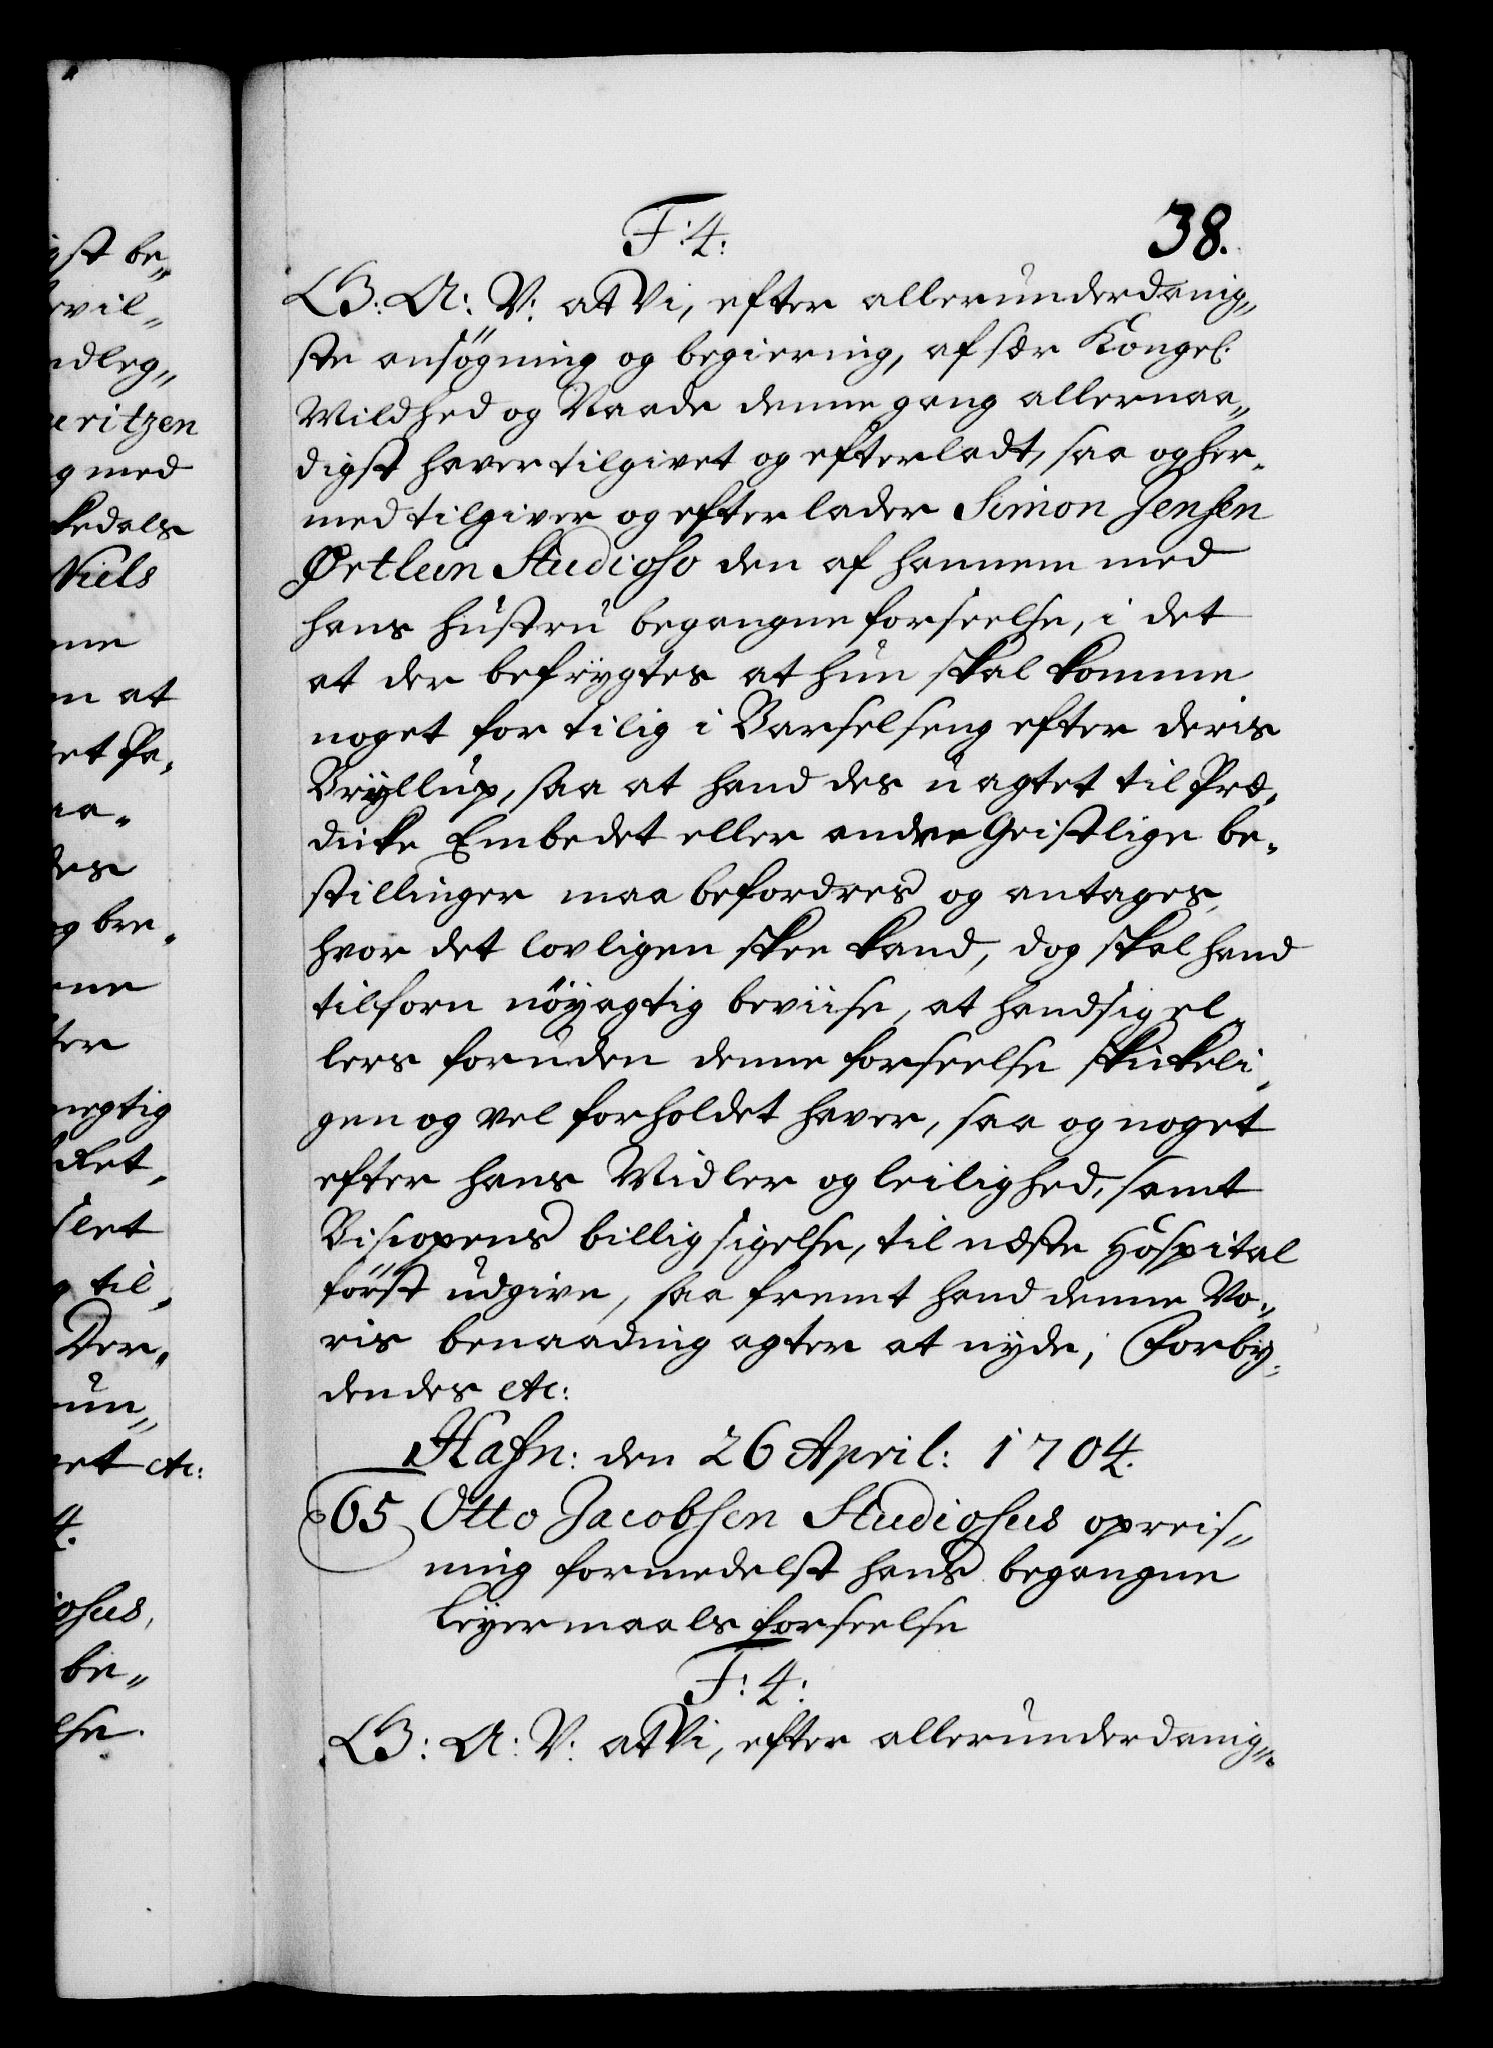 ist be„
evil„
ndleg„
eritzen
g med
kedals
Niels
me
en at
et Pa„
aa„
des
og bre„
ene
ter
megtig
Ret„
let
g til„
Der„
un„
et etc:
4.
iosus,
be„
else.
F: 4:
38.
G: A: V: at Vi, efter allerunderdanig„
ste ansögning og begiering, af sær Kongel.
Mildhed og Naade denne gang allernaa„
digst haver tilgivet og efterladt, saa og her„
med tilgiver og efterlader Simon Jensen
Ørtleun Studioso den af hannem med
hans hustru begangne forseelse, i det
at der befrygtes at hun skal komme
noget for tilig i Barselseng efter deris
Bryllup, saa at hand des uagtet til Præ„
dicke Embedet eller andre Geistlige be„
stillinger maa befordres og antages,
hvor det lovligen skee kand, dog skal hand
tilforn nöyagtig beviise, at hand sig el„
lers foruden denne forseelse skickeli„
gen og vel forholdet haver, saa og noget
efter hans Midler og leilighed, samt
Biscopens billigsigelse, til næste Hospital
först udgive, saa fremt hand denne Vo„
ris benaading agter at nyde, Forby„
dendes etc:
Hafn: den 26 April: 1704.
65 Otto Jacobsen Studiosus opreis„
ning formedelst hans begangne
leyermaals forseelse
F: 4:
G: A: V: at Vi, efter allerunderdanig„